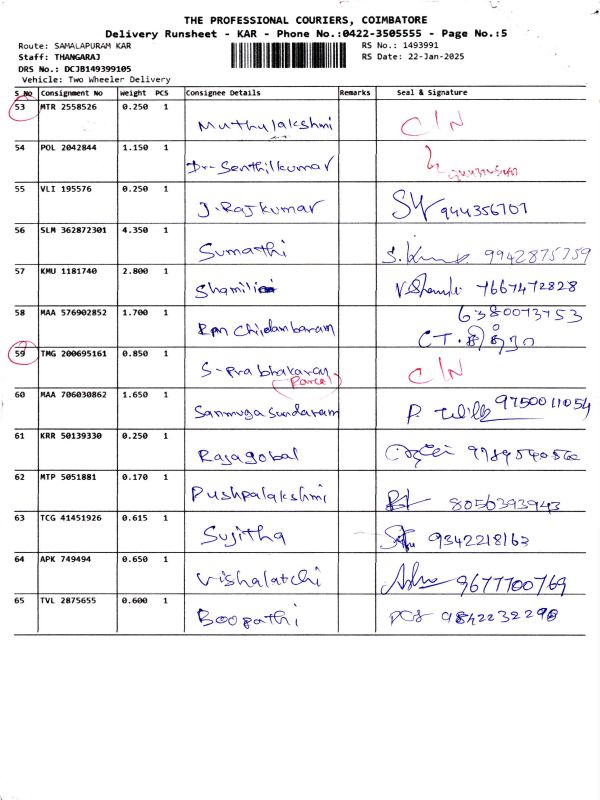 THE PROFESSIONAL COURIERS, COIMBATORE
Delivery Runsheet - KAR - Phone No.:0422-3505555 - Page No.:5
Route: SAMALAPURAM KAR
RS No.: 1493991
Staff: THANGARAJ
RS Date: 22-Jan-2025
DRS No.: DCJB149399105
Vehicle: Two Wheeler Delivery
S No Consignment No Weight PCS Consignee Details Remarks Seal & Signature
53 MTR 2558526 0.250 1 Muthulakshmi C/N
54 POL 2042844 1.150 1 Dr- Senthilkumar
55 VLI 195576 0.250 1 J. Rajkumar 944356707
56 SLM 362872301 4.350 1 Sumathi 9942875759
57 KMU 1181740 2.800 1 Shamili 7667472828
58 MAA 576902852 1.700 1 Rpn Chidambaram 6380073753
C.T.
59 TMG 200695161 0.850 1 S- Prabhakaran C/N
(Parcel)
60 MAA 706030862 1.650 1 Sanmuga Sundaram 9750011054
61 KRR 50139330 0.250 1 Rajagobal 9789540560
62 MTP 5051881 0.170 1 Pushpalakshmi 8056393943
63 TCG 41451926 0.615 1 Sujitha 9342218163
64 APK 749494 0.650 1 Vishalatchi 9677700769
65 TVL 2875655 0.600 1 Boopathi 9842232298